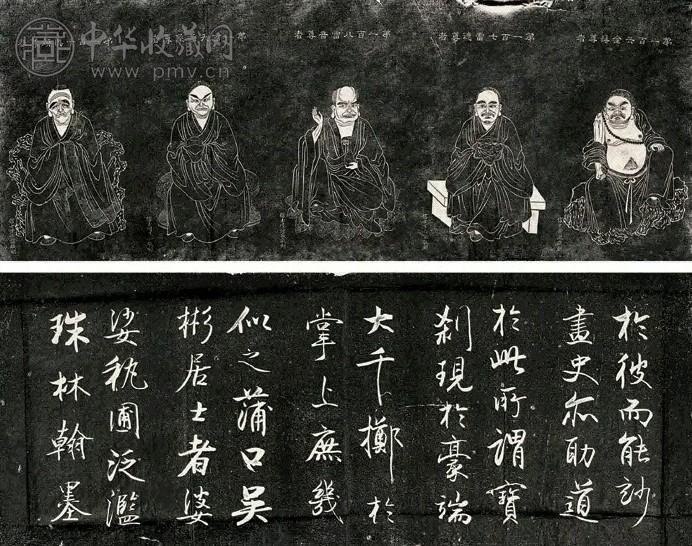 中华收藏网
www.pmv.cn
第一百六金尊者
第一百七雷德尊者
第一百八雷音尊者
於彼而能玅
畫史亦助道
於此所謂寶
剎現於豪端
大千擲於
掌上庶幾
似之蒲口吳
彬居士者婆
娑秇圃泛濫
珠林翰墨